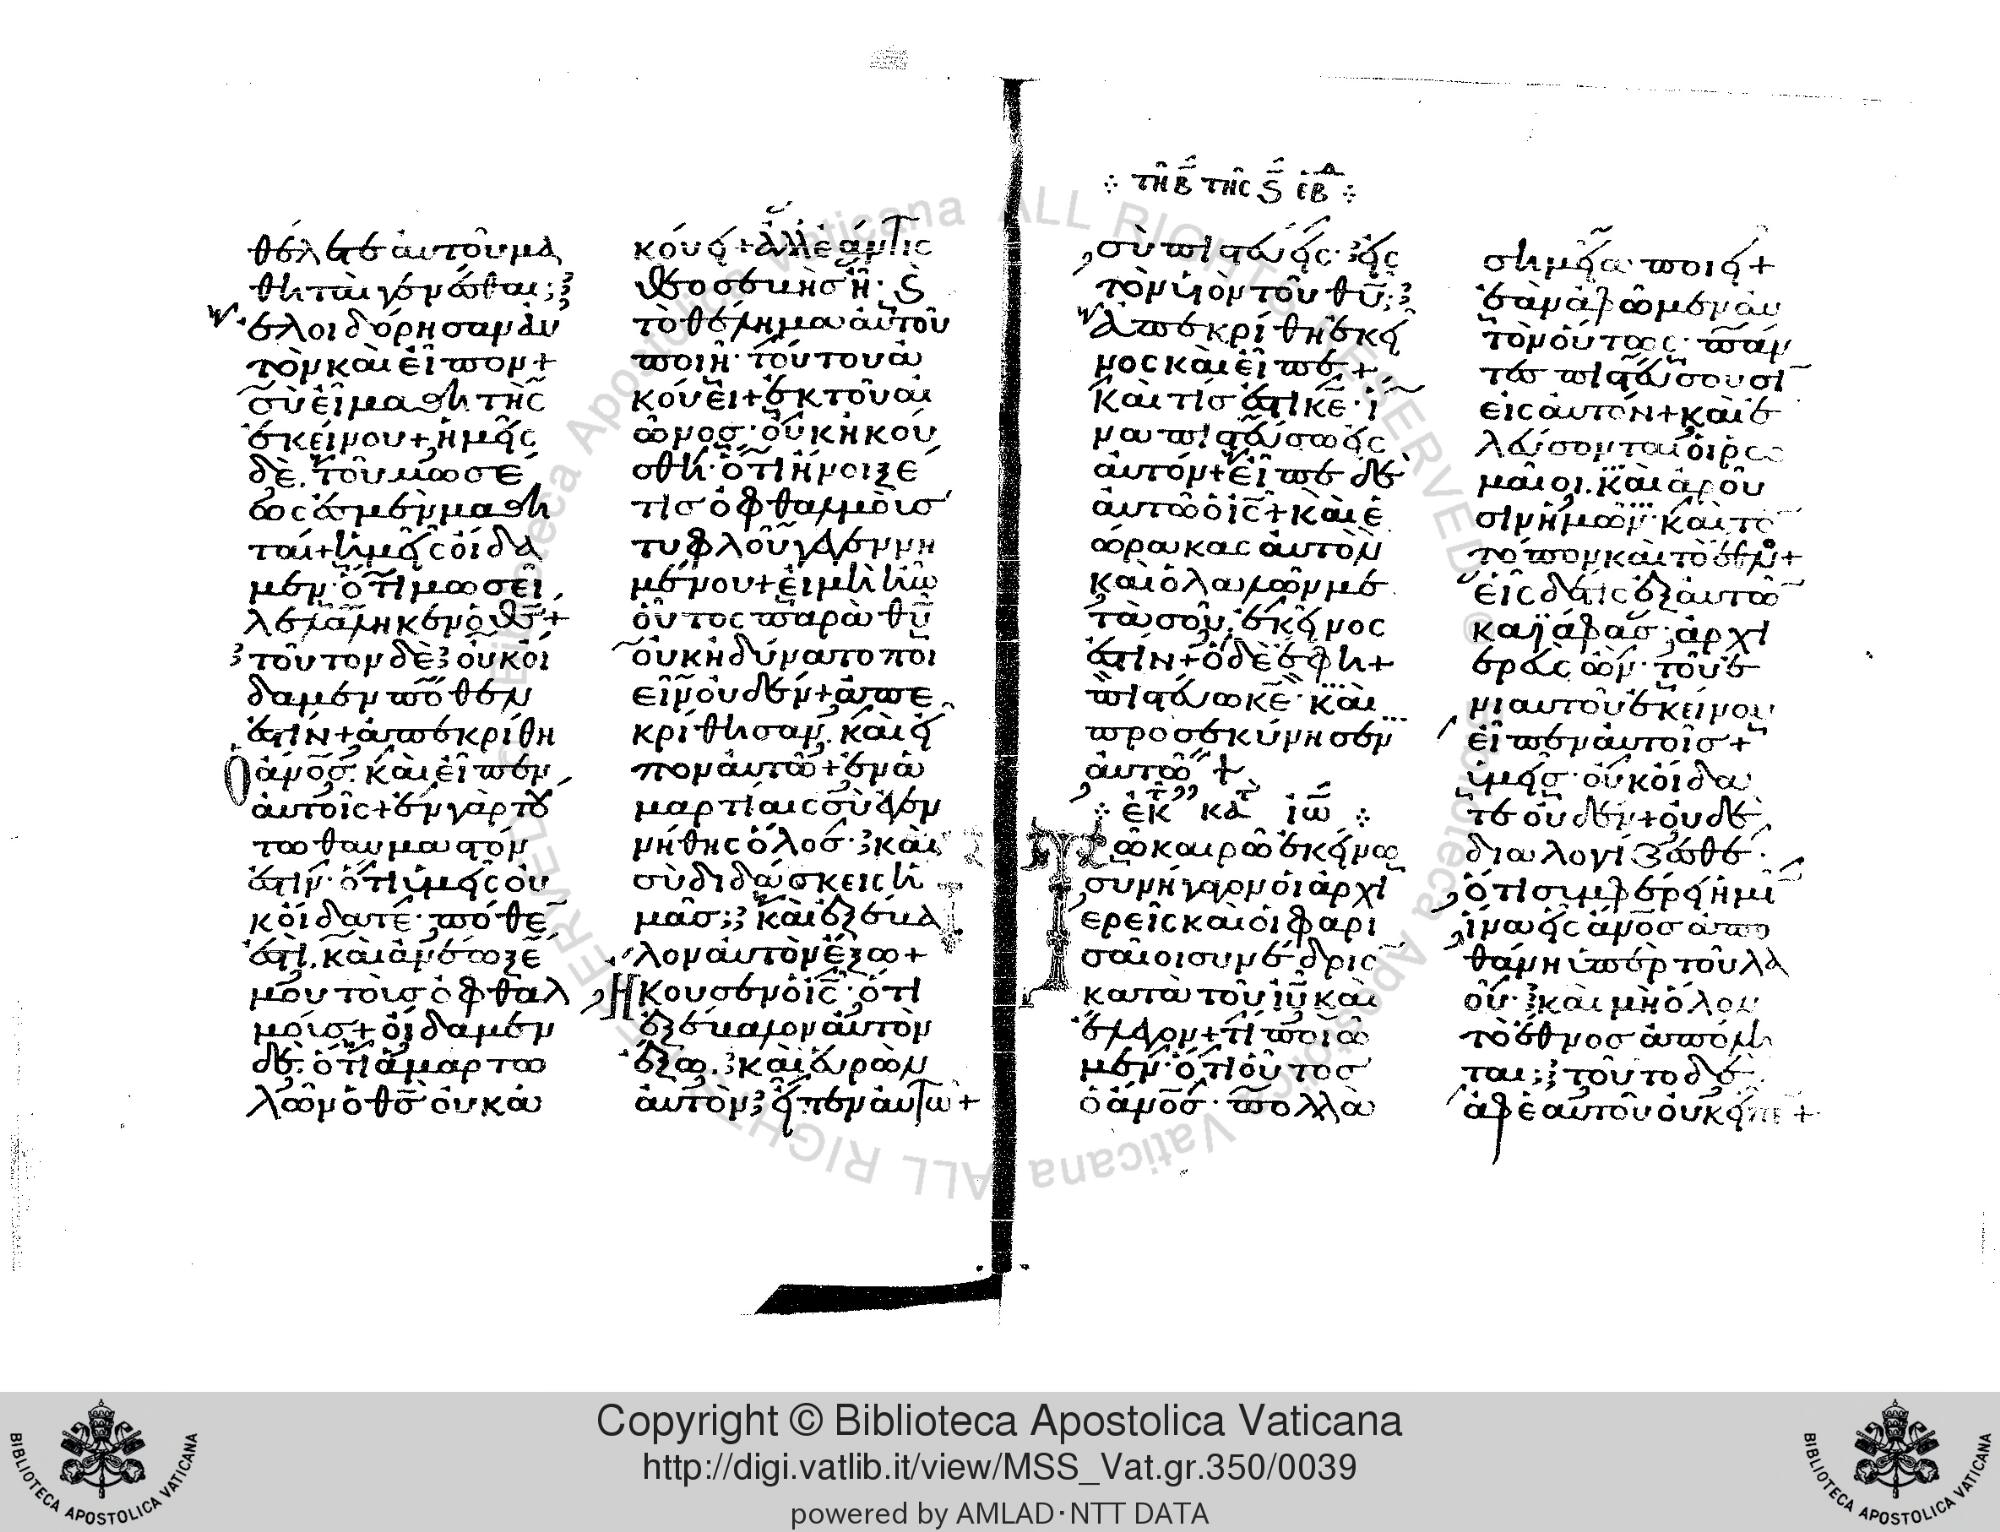 θέλετε αὐτοῦ μα
θηταὶ γενέσθαι;
ἐλοιδόρησαν αὐ
τὸν καὶ εἶπον+
σὺ εἶ μαθητὴς
ἐκείνου+ ἡμεῖς
δὲ. τοῦ μωσέ
ως ἐσμὲν μαθη
ταί+ ἡμεῖς οἴδα
μεν· ὅτι μωσεῖ
λελάληκεν ὁ θς+
τοῦτον δὲ οὐκ οἴ
δαμεν πόθεν
ἐστὶν+ ἀπεκρίθη
ὁ ἄνος. καὶ εἶπεν
αὐτοῖς+ ἐν γὰρ τού
τω θαυμαστόν
ἐστιν· ὅτι ὑμεῖς οὐ
κ οἴδατε· πόθε
ἐστὶ. καὶ ἀνέωξέ
μου τοὺς ὀφθαλ
μούς+ οἴδαμεν
δὲ. ὅτι ἁμαρτω
λῶν ὁ θς οὐκ ἀ
κούει+ ἀλλ' ἐάν τις
θεοσεβὴς ἦ· καὶ
τὸ θέλημα αὐτοῦ
ποιῆ· τούτου ἀ
κούει+ ἐκ τοῦ αἰ
ῶνος· οὐκ ἠκού
σθη· ὅτι ἤνοιξέ
τις ὀφθαλμοὺς
τυφλοῦ γεγεννη
μένου+ εἰ μὴ ἦν
οὗτος παρὰ θυ
οὐκ ἠδύνατο ποι
εῖν οὐδέν+ ἀπε
κρίθησαν. καὶ εἶ
πον αὐτῶ+ ἐν ἁ
μαρτίαις σὺ ἐγεν
νήθης ὅλος· καὶ
σὺ διδάσκεις ἡ
μᾶς; καὶ ἐξέβα
λον αὐτὸν ἔξω+
Ἤκουσεν ὁ ις· ὅτι
ἐξέβαλον αὐτὸν
ἔξω. καὶ εὑρὼν
αὐτὸν εἶπεν αὐτῶ+
τῆ β τῆς ϛ ἑβδ
σὺ πιστεύεις· εἰς
τὸν υἱὸν τοῦ θυ;
ἀπεκρίθη ἐκεῖ
νος καὶ εἶπε+
καὶ τίς ἐστι κε· ἵ
να πιστεύσω εἰς
αὐτόν+ εἶπε δὲ
αὐτῶ ὁ ις+ καὶ ἑ
ώρακας αὐτὸν
καὶ ὁ λαλῶν με
τὰ σοῦ. ἐκεῖνος
ἐστὶν+ ὁ δὲ ἔφη+
πιστεύω κε· καὶ
προσεκύνησεν
αὐτῶ+
ἐκ τ κατ ἰω
Τῶ καιρῶ ἐκείνω
συνήγαγον οἱ ἀρχι
ερεῖς καὶ οἱ φαρι
σαῖοι συνέδριο
κατὰ τοῦ ιυ καὶ
ἔλεγον+ τί ποιοῦ
μεν· ὅτι οὗτος
ὁ ἄνος· πολλὰ
σημεῖα· ποιεῖ+
ἐὰν ἀφῶμεν αὐ
τὸν οὕτως· πάν
τες πιστεύσουσι
εἰς αὐτόν+ καὶ ἐ
λεύσονται οἱ ρω
μαῖοι. καὶ ἀροῦ
σιν ἡμῶν· καὶ τὸ
τόπον καὶ τὸ ἔθνος+
εἷς δέ τις ἐξ αὐτῶ
καϊάφας· ἀρχι
ερεὺς ὢν· τοῦ ἐ
νιαυτοῦ ἐκείνου
εἶπεν αὐτοῖς+
ὑμεῖς· οὐκ οἴδα
τε οὐδέν+ οὐδὲ
διαλογίζεσθε·
ὅτι συμφέρει ἡμῖ
ἵνα εἷς ἄνος ἀπο
θάνη ὑπὲρ τοῦ λα
οῦ· καὶ μὴ ὅλον
τὸ ἔθνος ἀπόλη
ται; τοῦτο δὲ
ἀφ' ἑαυτοῦ οὐκ εἶπε+
Copyright © Biblioteca Apostolica Vaticana
http://digi.vatlib.it/view/MSS_Vat.gr.350/0039
powered by AMLAD·NTT DATA
BIBLIOTECA APOSTOLICA VATICANA
BIBLIOTECA APOSTOLICA VATICANA